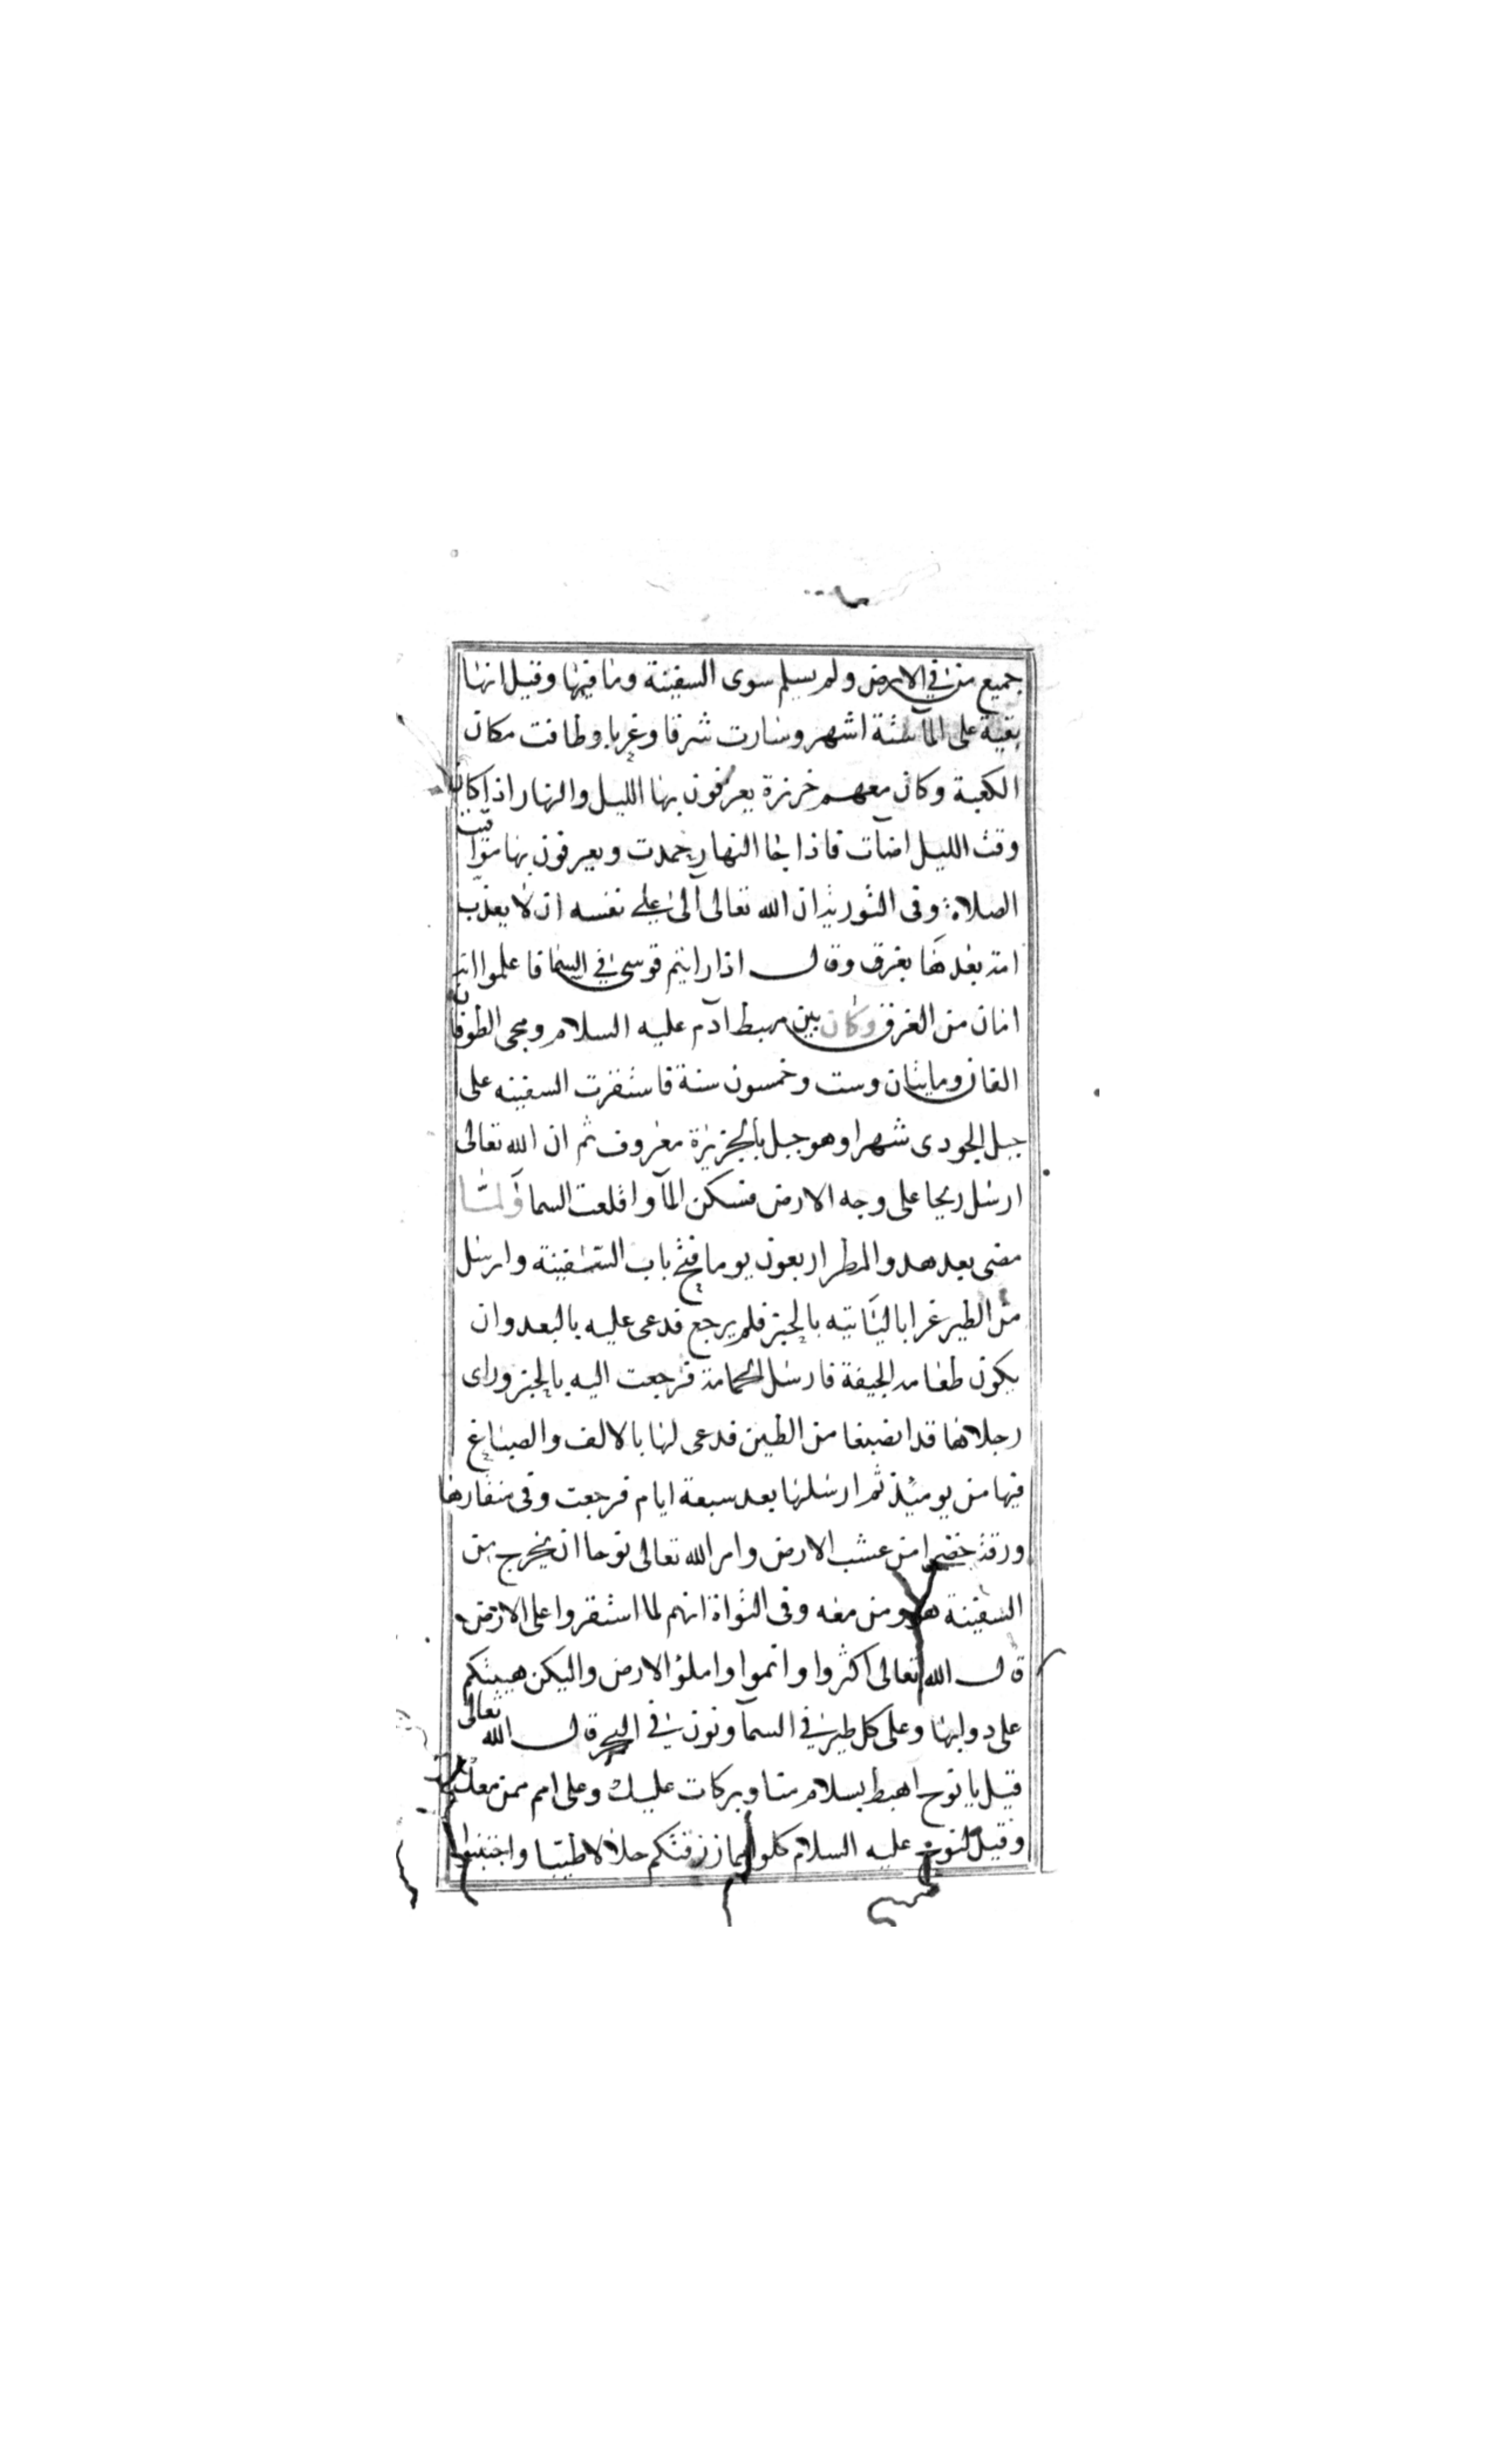 جميع من في الارض ولم يسلم سوى السفينة وما فيها وقيل انها
بقية على المآ ستة اشهر وسارت شرقا وغربا وطافت مكان
الكعبة وكان معهم خرزة يعرفون بها الليل والنهار اذا كان
وقت الليل اضآت فاذا جا النهار خمدت ويعرفون بها مواقيت
الصلاة وفى التورية ان الله تعالى آلى على نفسه ان لا يعذب
امة بعدها بغرق وقال اذا رايتم قوسى في السما فاعلموا انه
امان من الغرق وكان بين مهبط آدم عليه السلام ومجى الطوفان
الفان ومايتان وست وخمسون سنة فاستقرت السفينه على
جبل الجودى شهرا وهو جبل بالجزيرة معروف ثم ان الله تعالى
ارسل ريحا على وجه الارض فسكن المآ واقلعت السما ولما
مضى بعد هدو المطر اربعون يوما فتح باب السفينة وارسل
من الطير غرابا لياتيه بالخبر فلم يرجع فدعى عليه بالبعد وان
يكون طعامه الجيفة فارسل الحمامة فرجعت اليه بالخبر وراى
رجلاها قد انصبغا من الطين فدعى لها بالالف والصباغ
فيها من يوميذ ثم ارسلها بعد سبعة ايام فرجعت وفى منقارها
ورقة خضرا من عشب الارض وامر الله تعالى نوحا ان يخرج من
السفينة هو ومن معه وفى التواة انهم لما استقروا على الارض
قال الله تعالى اكثروا وانموا واملؤ الارض واليكن هيبتكم
على دوابها وعلى كل طير في السمآ ونون في البحر قال الله تعالى
قيل يا نوح اهبط بسلام منا وبركات عليك وعلى امم ممن معك
وقيل لنوح عليه السلام كلوا مما رزقتكم حلالا طيبا واجتنبوا